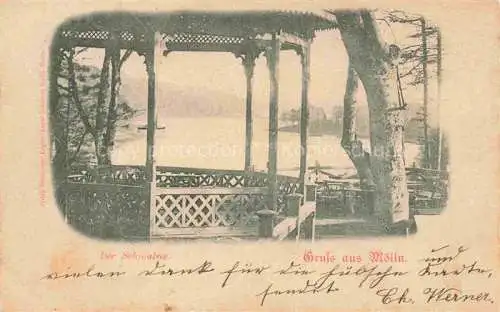 Der Schwalbe.
Gruss aus Mölln.
vielen Dank für die hübsche Karte und
sendet Ch. Werner.